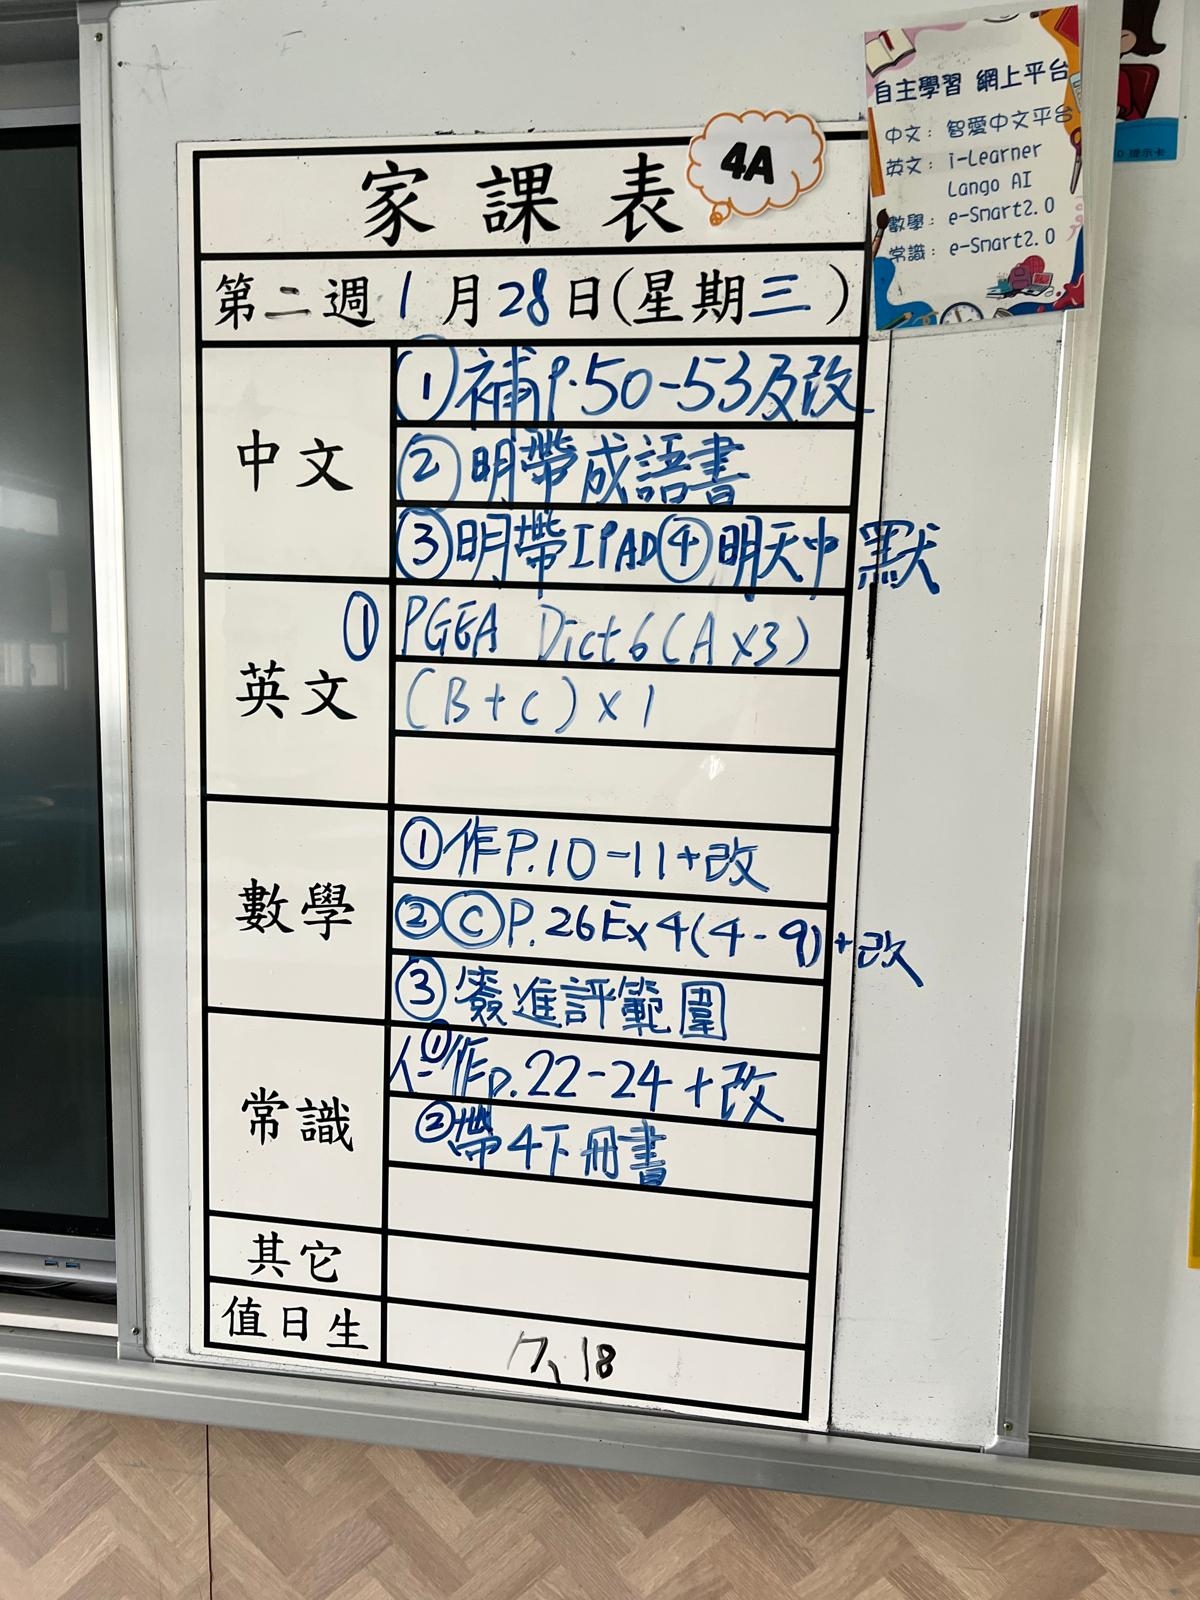 家課表
4A
第二週1月28日(星期三)
中文
①補P.50-53及改
②明帶成語書
③明帶IPAD④明天中默
英文
①PGEA Dict 6(A×3)
(B+C)×1
數學
①作P.10-11+改
②Ⓒ P.26Ex4(4-9)+改
③簽進評範圍
常識
①作p.22-24+改
②帶4下冊書
其它
值日生
17、18
自主學習 網上平台
中文：智愛中文平台
英文：i-Learner
Lango AI
數學：e-Smart2.0
常識：e-Smart2.0
提示卡